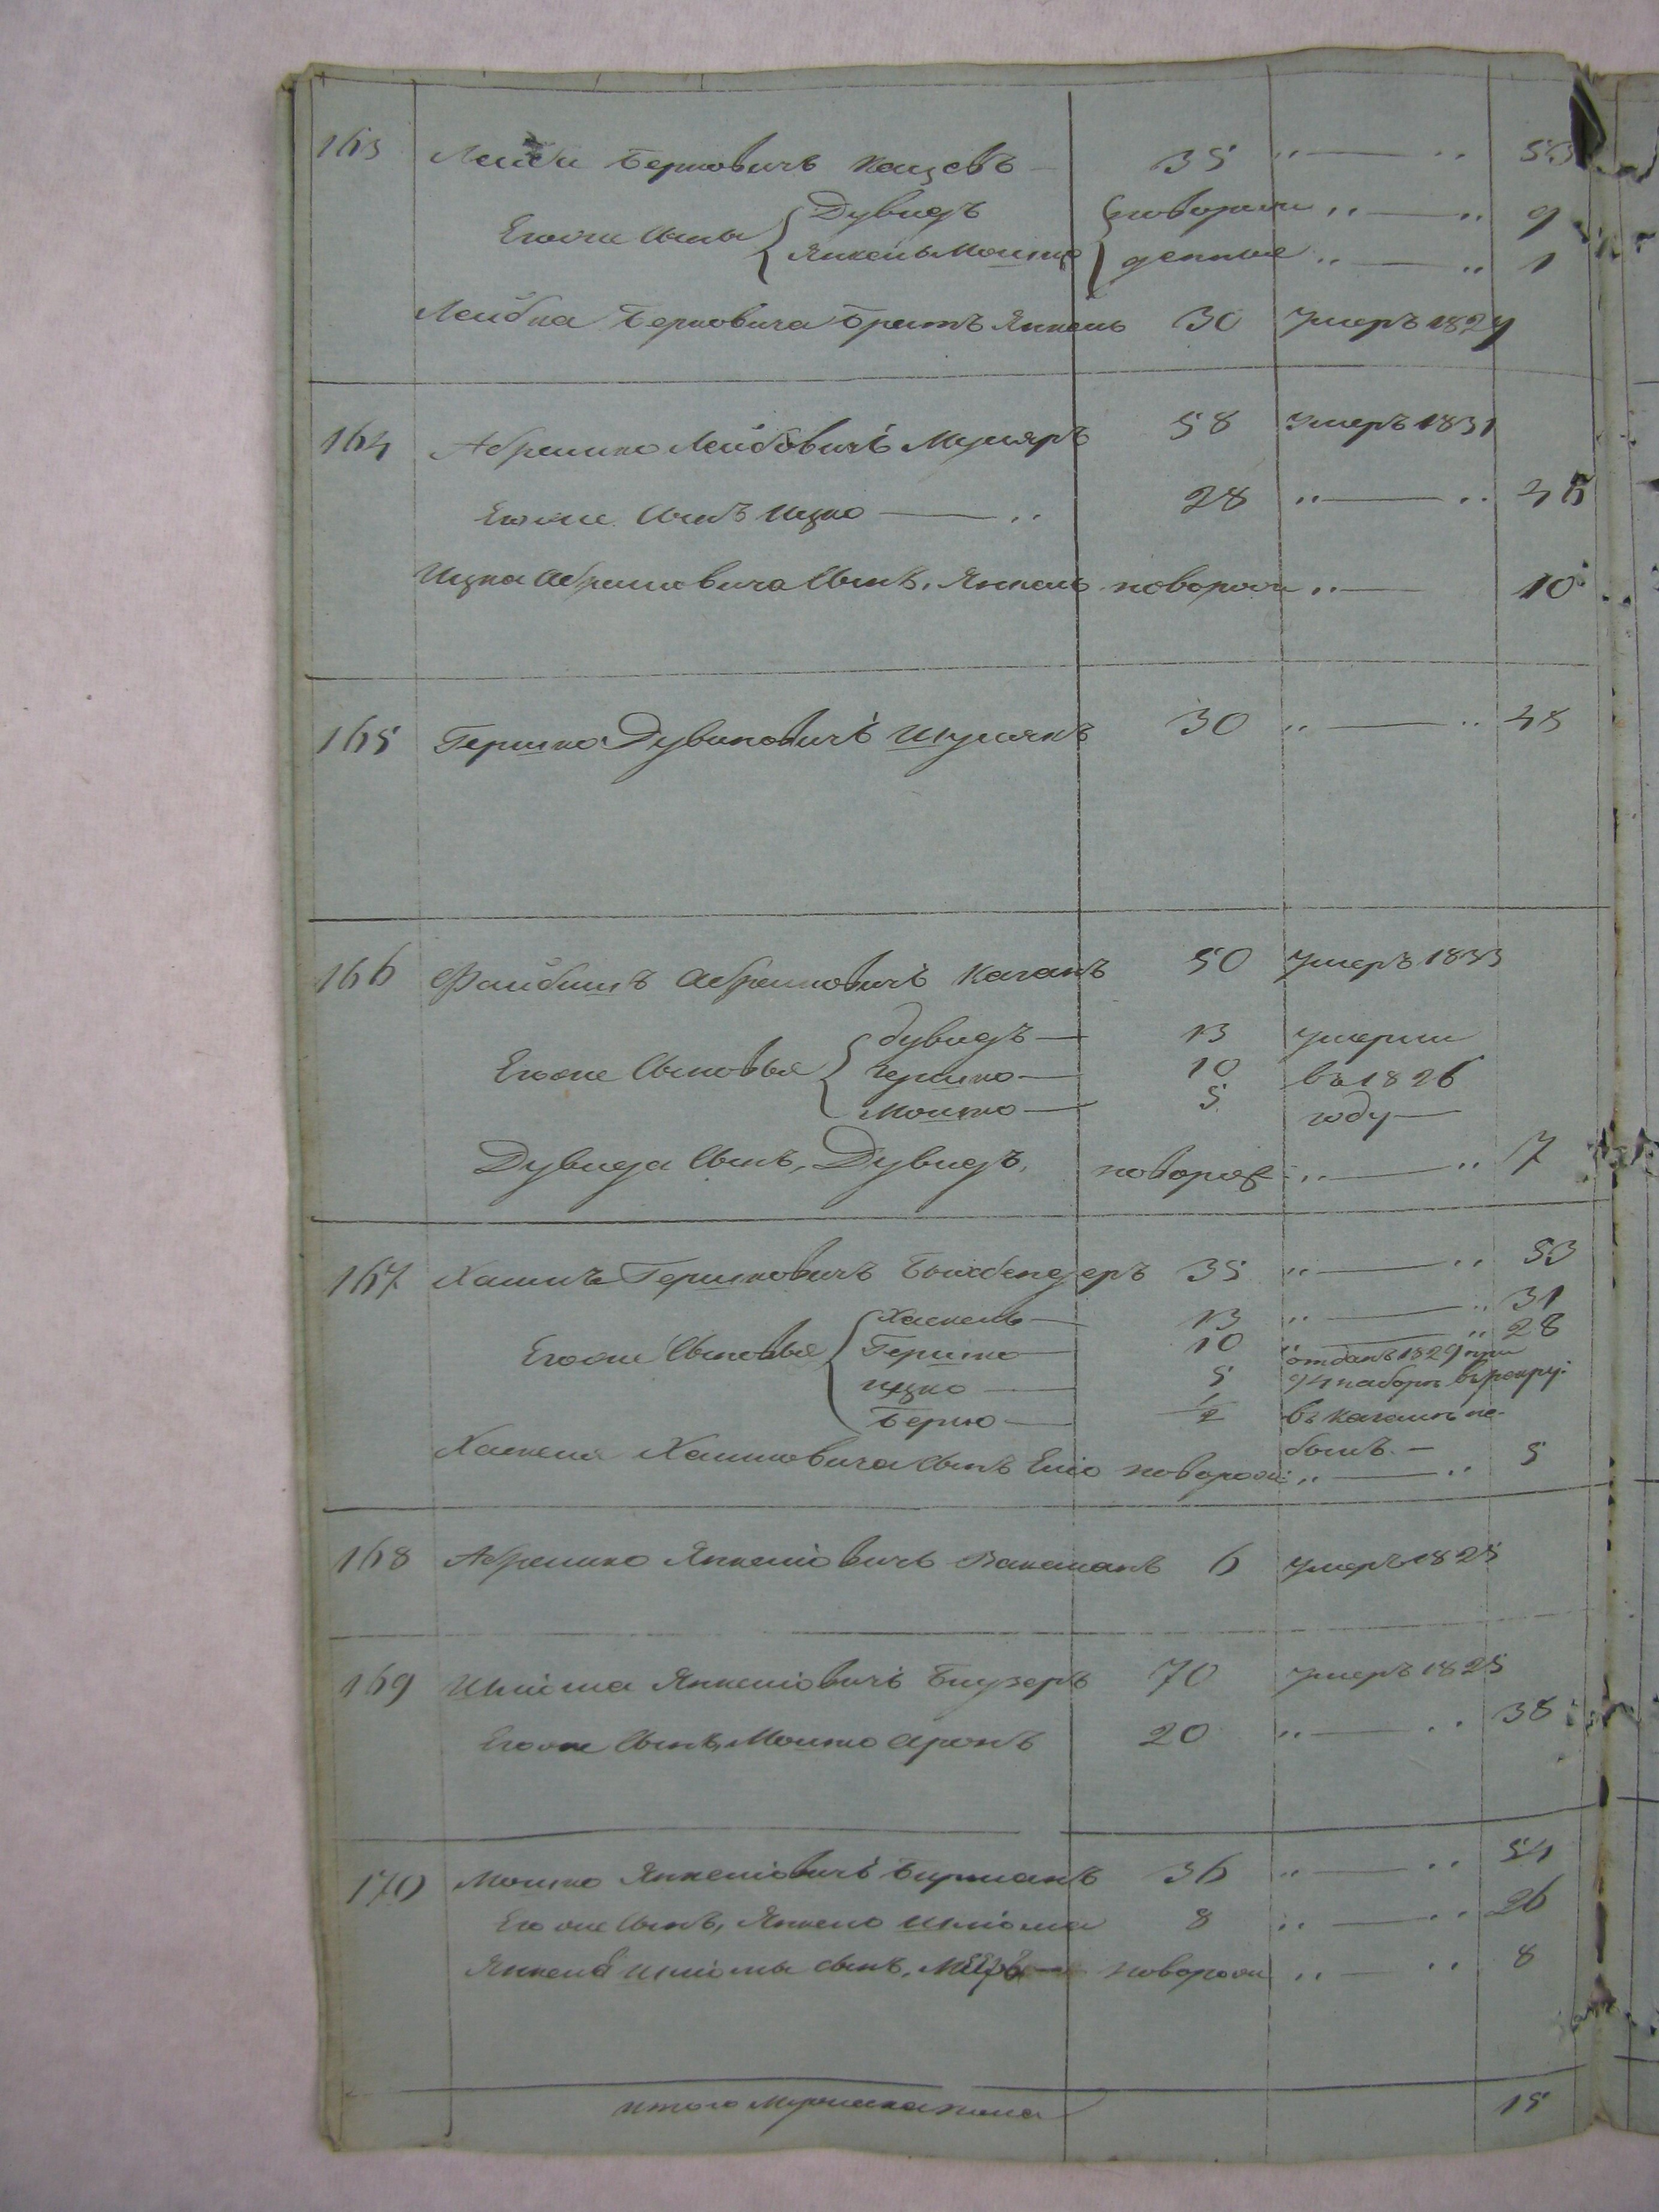 163 Лейба Берковичъ Кацевъ — 35 ..——.. 53
Егоже сыны { Дувидъ { новорож ..——.. 9
Янкель Мошко { денные ..——.. 1
Лейбка Берковича братъ Янкель 30 умеръ 1827
164 Абрамко Лейбовичъ Муляръ 58 умеръ 1831
Егоже сынъ Ицко ——.. 28 ..——.. 46
Ицка Абрамовича сынъ, Янкель новорож ..—— 10
165 Гершко Дувидовичъ Шулякъ 30 ..——.. 48
166 Файбишъ Абрамковичъ Каганъ 50 умеръ 1833
Егоже сыновья { Дувидъ — 13 умерли
Гершко — 10 въ 1826
Мошко — 5 году —
Дувида сынъ, Дувидъ, новорож ..——.. 7
167 Хаимъ Гершковичъ Бухбендеръ 35 ..——.. 53
Егоже сыновья { Хаскель — 13 ..——.. 31
Гершко — 10 ..——.. 28
Ицко — 5 отданъ 1829 при 94 наборѣ въ рекру:
Берко — 1/2 въ Кагалѣ не былъ. —
Хаскеля Хаимовича сынъ Еліо новорож: ..——.. 5
168 Абрамко Янкеліовичъ Ваксманъ 6 умеръ 1825
169 Шліома Янкеліовичъ 70 умеръ 1825
Егоже сынъ, Мошко Аронъ 20 ..——.. 38
170 Мошко Янкеліовичъ Бирманъ 36 ..——.. 54
Егоже сынъ, Янкель Шліома 8 ..——.. 26
Янкеля Шліомы сынъ, новорож ..——.. 8
итого Мужеска пола 15